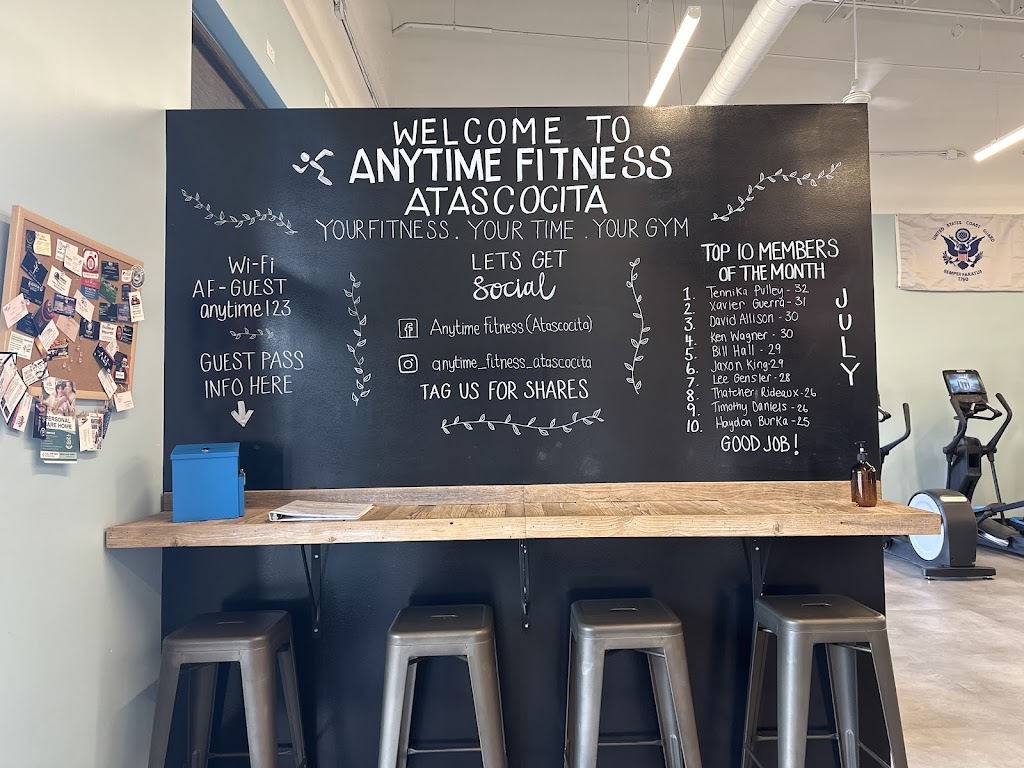 WELCOME TO
ANYTIME FITNESS
ATASCOCITA
YOUR FITNESS. YOUR TIME. YOUR GYM
Wi-Fi
AF-GUEST
anytime123
GUEST PASS
INFO HERE
LETS GET
Social
Anytime Fitness (Atascocita)
anytime_fitness_atascocita
TAG US FOR SHARES
TOP 10 MEMBERS
OF THE MONTH
JULY
1. Tennika Pulley - 32
2. Xavier Guerra - 31
3. David Allison - 30
4. Ken Wagner - 30
5. Bill Hall - 29
6. Jaxon King - 29
7. Lee Gensler - 28
8. Thatcher Rideaux - 26
9. Timothy Daniels - 26
10. Haydon Burka - 25
GOOD JOB!
UNITED STATES COAST GUARD
SEMPER PARATUS
1790
PERSONAL
CARE HOME